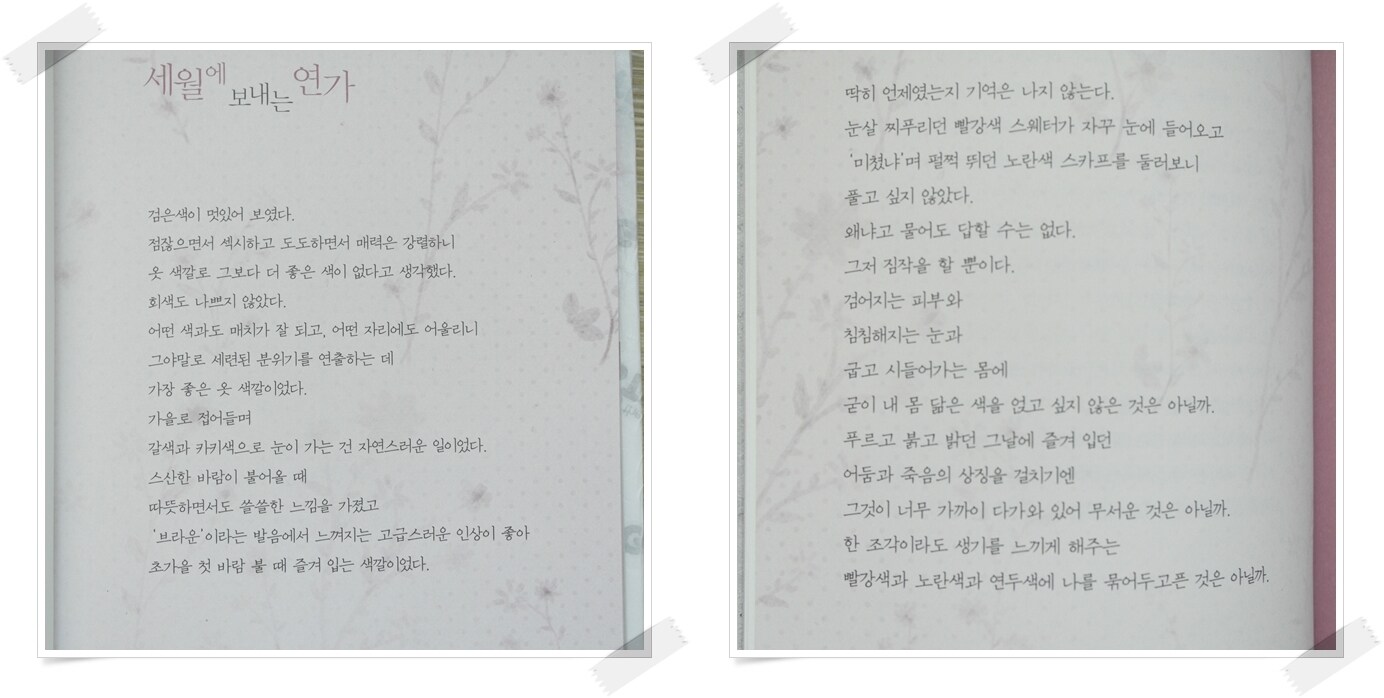 세월에 보내는 연가
검은색이 멋있어 보였다.
점잖으면서 섹시하고 도도하면서 매력은 강렬하니
옷 색깔로 그보다 더 좋은 색이 없다고 생각했다.
회색도 나쁘지 않았다.
어떤 색과도 매치가 잘 되고, 어떤 자리에도 어울리니
그야말로 세련된 분위기를 연출하는 데
가장 좋은 옷 색깔이었다.
가을로 접어들며
갈색과 카키색으로 눈이 가는 건 자연스러운 일이었다.
스산한 바람이 불어올 때
따뜻하면서도 쓸쓸한 느낌을 가졌고
'브라운'이라는 발음에서 느껴지는 고급스러운 인상이 좋아
초가을 첫 바람 불 때 즐겨 입는 색깔이었다.
딱히 언제였는지 기억은 나지 않는다.
눈살 찌푸리던 빨강색 스웨터가 자꾸 눈에 들어오고
'미쳤냐'며 펄쩍 뛰던 노란색 스카프를 둘러보니
풀고 싶지 않았다.
왜냐고 물어도 답할 수는 없다.
그저 짐작을 할 뿐이다.
검어지는 피부와
침침해지는 눈과
굽고 시들어가는 몸에
굳이 내 몸 닮은 색을 얹고 싶지 않은 것은 아닐까.
푸르고 붉고 밝던 그날에 즐겨 입던
어둠과 죽음의 상징을 걸치기엔
그것이 너무 가까이 다가와 있어 무서운 것은 아닐까.
한 조각이라도 생기를 느끼게 해주는
빨강색과 노란색과 연두색에 나를 묶어두고픈 것은 아닐까.